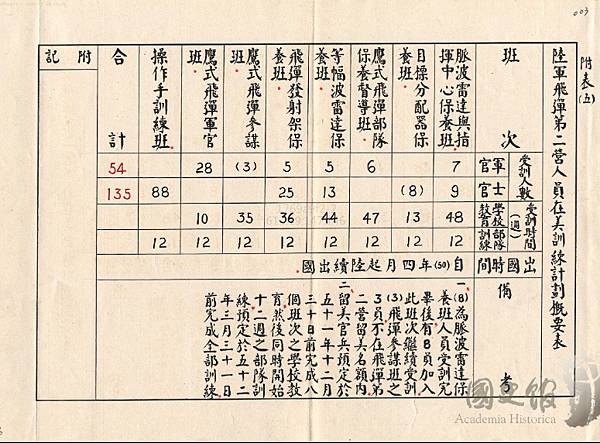 003
附表(五)
陸軍飛彈第二營人員在美訓練計劃概要表
班次
受訓人數
軍官
士官
受訓時間(週)
學校教育
部隊訓練
出國時間
備考
脈波雷達與指揮中心保養班
7
9
48
12
目標分配器保養班
(8)
13
12
鷹式飛彈部隊保養督導班
6
47
12
等幅波雷達保養班
5
13
44
12
飛彈發射架保養班
5
25
36
12
鷹式飛彈參謀班
(3)
35
12
鷹式飛彈軍官班
28
10
12
操作手訓練班
88
12
合計
54
135
附記
自(50)年四月起陸續出國
一、(8)為脈波雷達保
養班人員受訓完
畢後有8員加入
此班次繼續受訓
(3)飛彈參謀班之
3員不在飛彈第
二營留美名額內
二留美官兵預定於
五十一年十二月
三十日前完成八
個班次之學校教
育然後同時開始
十二週之部隊訓
練預定於五十二
年三月三十一日
前完成全部訓練
國史館
Academia Historica